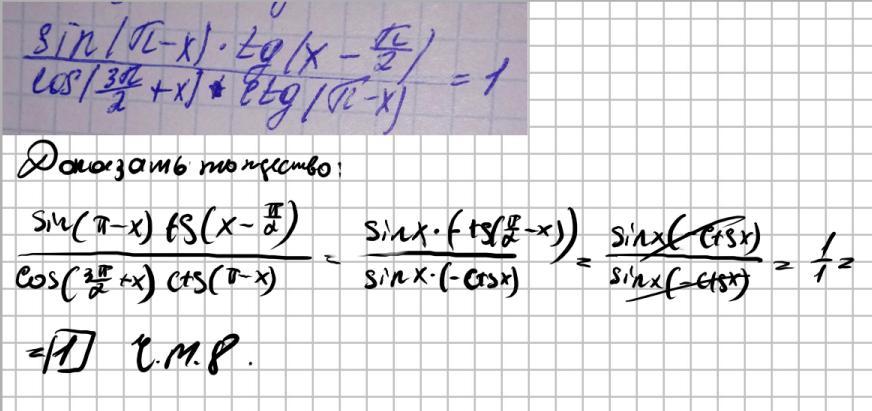 sin(π-x) · tg(x - π/2) / cos(3π/2 + x) · ctg(π-x) = 1
Доказать тождество:
sin(π-x) tg(x - π/2) / cos(3π/2 + x) ctg(π-x) = sinx · (-tg(π/2 - x)) / sinx · (-ctgx) = sinx(-ctgx) / sinx(-ctgx) = 1/1 =
= 1 ч.т.д.